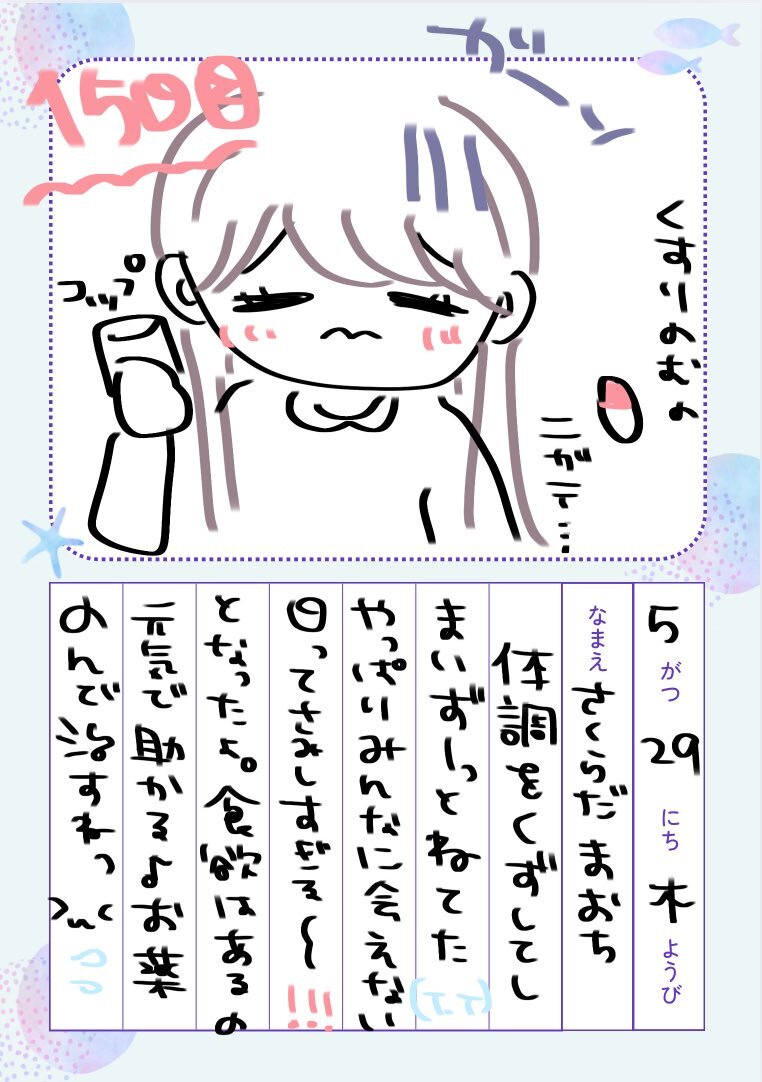 150日
ガーン
くすりのむの
ニガテ…
コップ
5がつ29にち木ようび
なまえ さくらだ まおち
体調をくずしてし
まいずーっとねてた(TT)
やっぱりみんなに会えない
日ってさみしすぎる〜!!!
となったよ。食欲はあるの
元気で助かるよお薬
のんで治すねっ